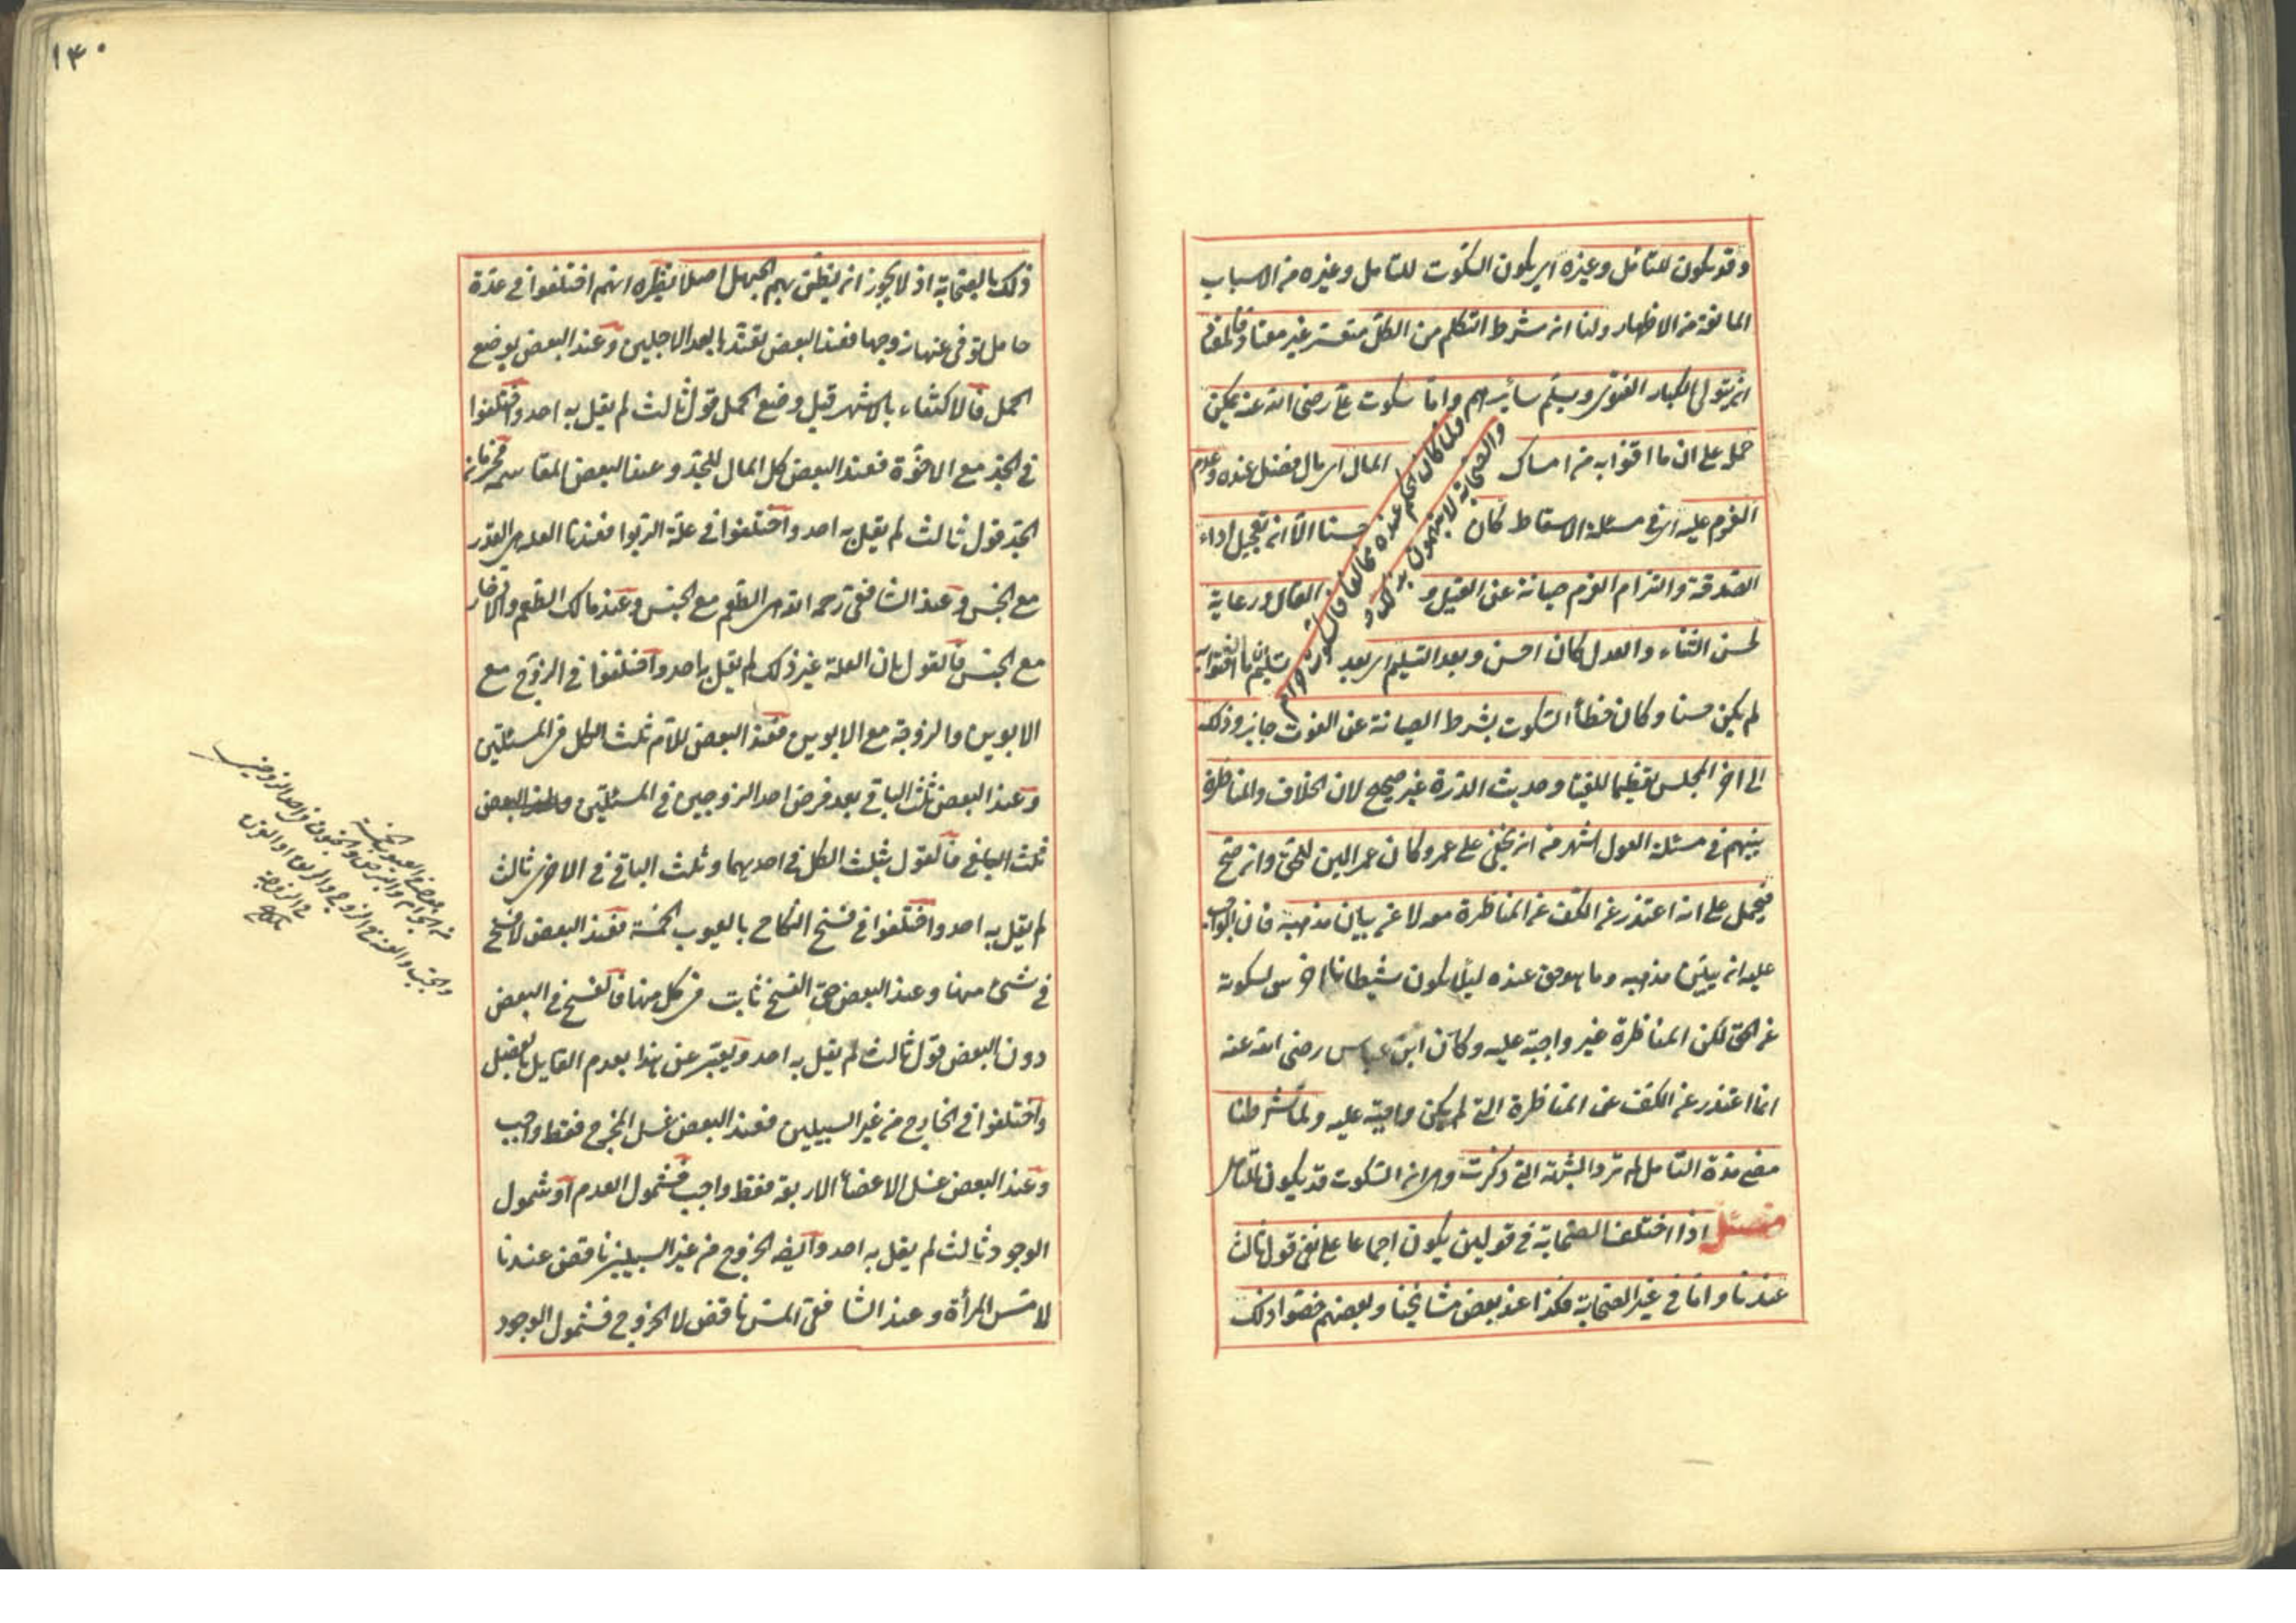 وقد يكون للتأمل وغيره اى يكون السكوت للتأمل وغيره من الاسباب
المانعة من الاظهار ولنا ان شرط التكلم من الكل متعسر غير معتاد والمعتاد
ان يتولى الكبار الفتوى ويسلم سائرهم واما سكوت على رضى الله عنه يمكن
حمل على ان ما افتوا به من امساك المال اى مال فضل عنده وعدم
الغرم عليه اى فى مسئلة الاسقاط كان حسنا الا ان تعجيل اداء
الصدقة والتزام الغرم صيانة عن القيل والقال ورعاية
لحسن الثناء والعدل كان احسن وبعد التسليم اى بعد تسليم ان ما افتوا به
لم يكن حسنا وكان خطأ السكوت بشرط الصيانة عن الفوت جايز وذلك
الى اخر المجلس تعظيما للفتيا وحديث الدرة غير صحيح لان الخلاف والمناظرة
بينهم فى مسئلة العول اشهر من ان يخفى على عمر وكان عمر الين للحق وان صح
فيحمل على انه اعتذر عن الكف عن المناظرة معه لا عن بيان مذهبه فان الواجب
عليه ان يبين مذهبه وما هو حق عنده ليلا يكون شيطانا اخرس لسكوته
عن الحق لكن المناظرة غير واجبة عليه وكان ابن عباس رضى الله عنه
انما اعتذر عن الكف عن المناظرة التى لم يكن واجبة عليه ولما شرطنا
مضى مدة التأمل لم ترد الشبهة التى ذكرت وهى ان السكوت قد يكون للتأمل
مسئلة اذا اختلف الصحابة فى قولين يكون اجماعا على نفى قول ثالث
عندنا واما فى غير الصحابة فكذا عند بعض مشايخنا وبعضهم خصوا ذلك
ولما كان الحكم عنده مخالفا فالسكوت حرام
والصحابة لا يتهمون بذلك
١٤٠
ذلك بالصحابة اذ لا يجوز ان يظن بهم الجهل اصلا نظيره انهم اختلفوا فى عدة
حامل توفى عنها زوجها فعند البعض تعتد بابعد الاجلين وعند البعض بوضع
الحمل فالاكتفاء بالاشهر قبل وضع الحمل قول ثالث لم يقل به احد واختلفوا
فى الجد مع الاخوة فعند البعض كل المال للجد وعند البعض المقاسمة فحرمان
الجد قول ثالث لم يقل به احد واختلفوا فى علة الربوا فعندنا العلة هى القدر
مع الجنس وعند الشافعى رحمه الله هى الطعم مع الجنس وعند مالك الطعم والادخار
مع الجنس فالقول بان العلة غير ذلك لم يقل به احد واختلفوا فى الزوج مع
الابوين والزوجة مع الابوين فعند البعض للام ثلث الكل فى المسئلتين
وعند البعض ثلث الباقى بعد فرض احد الزوجين فى المسئلتين وعند البعض
ثلث الباقى فالقول بثلث الكل فى احديهما وثلث الباقى فى الاخرى ثالث
لم يقل به احد واختلفوا فى فسخ النكاح بالعيوب الخمسة فعند البعض لا فسخ
فى شئ منها وعند البعض حق الفسخ ثابت فى كل منها فالفسخ فى البعض
دون البعض قول ثالث لم يقل به احد ويعبر عن هذا بعدم القايل بالفصل
واختلفوا فى الخارج من غير السبيلين فعند البعض غسل المخرج فقط واجب
وعند البعض غسل الاعضاء الاربعة فقط واجب فشمول العدم او شمول
الوجود ثالث لم يقل به احد وايضا الخروج من غير السبيلين ناقض عندنا
لا مس المرأة وعند الشافعى المس ناقض لا الخروج فشمول الوجود
العيوب الخمسة
من الجذام والبرص والجنون فى احد الزوجين
والجب والعنة فى الزوج والرتق او القرن
فى الزوجة